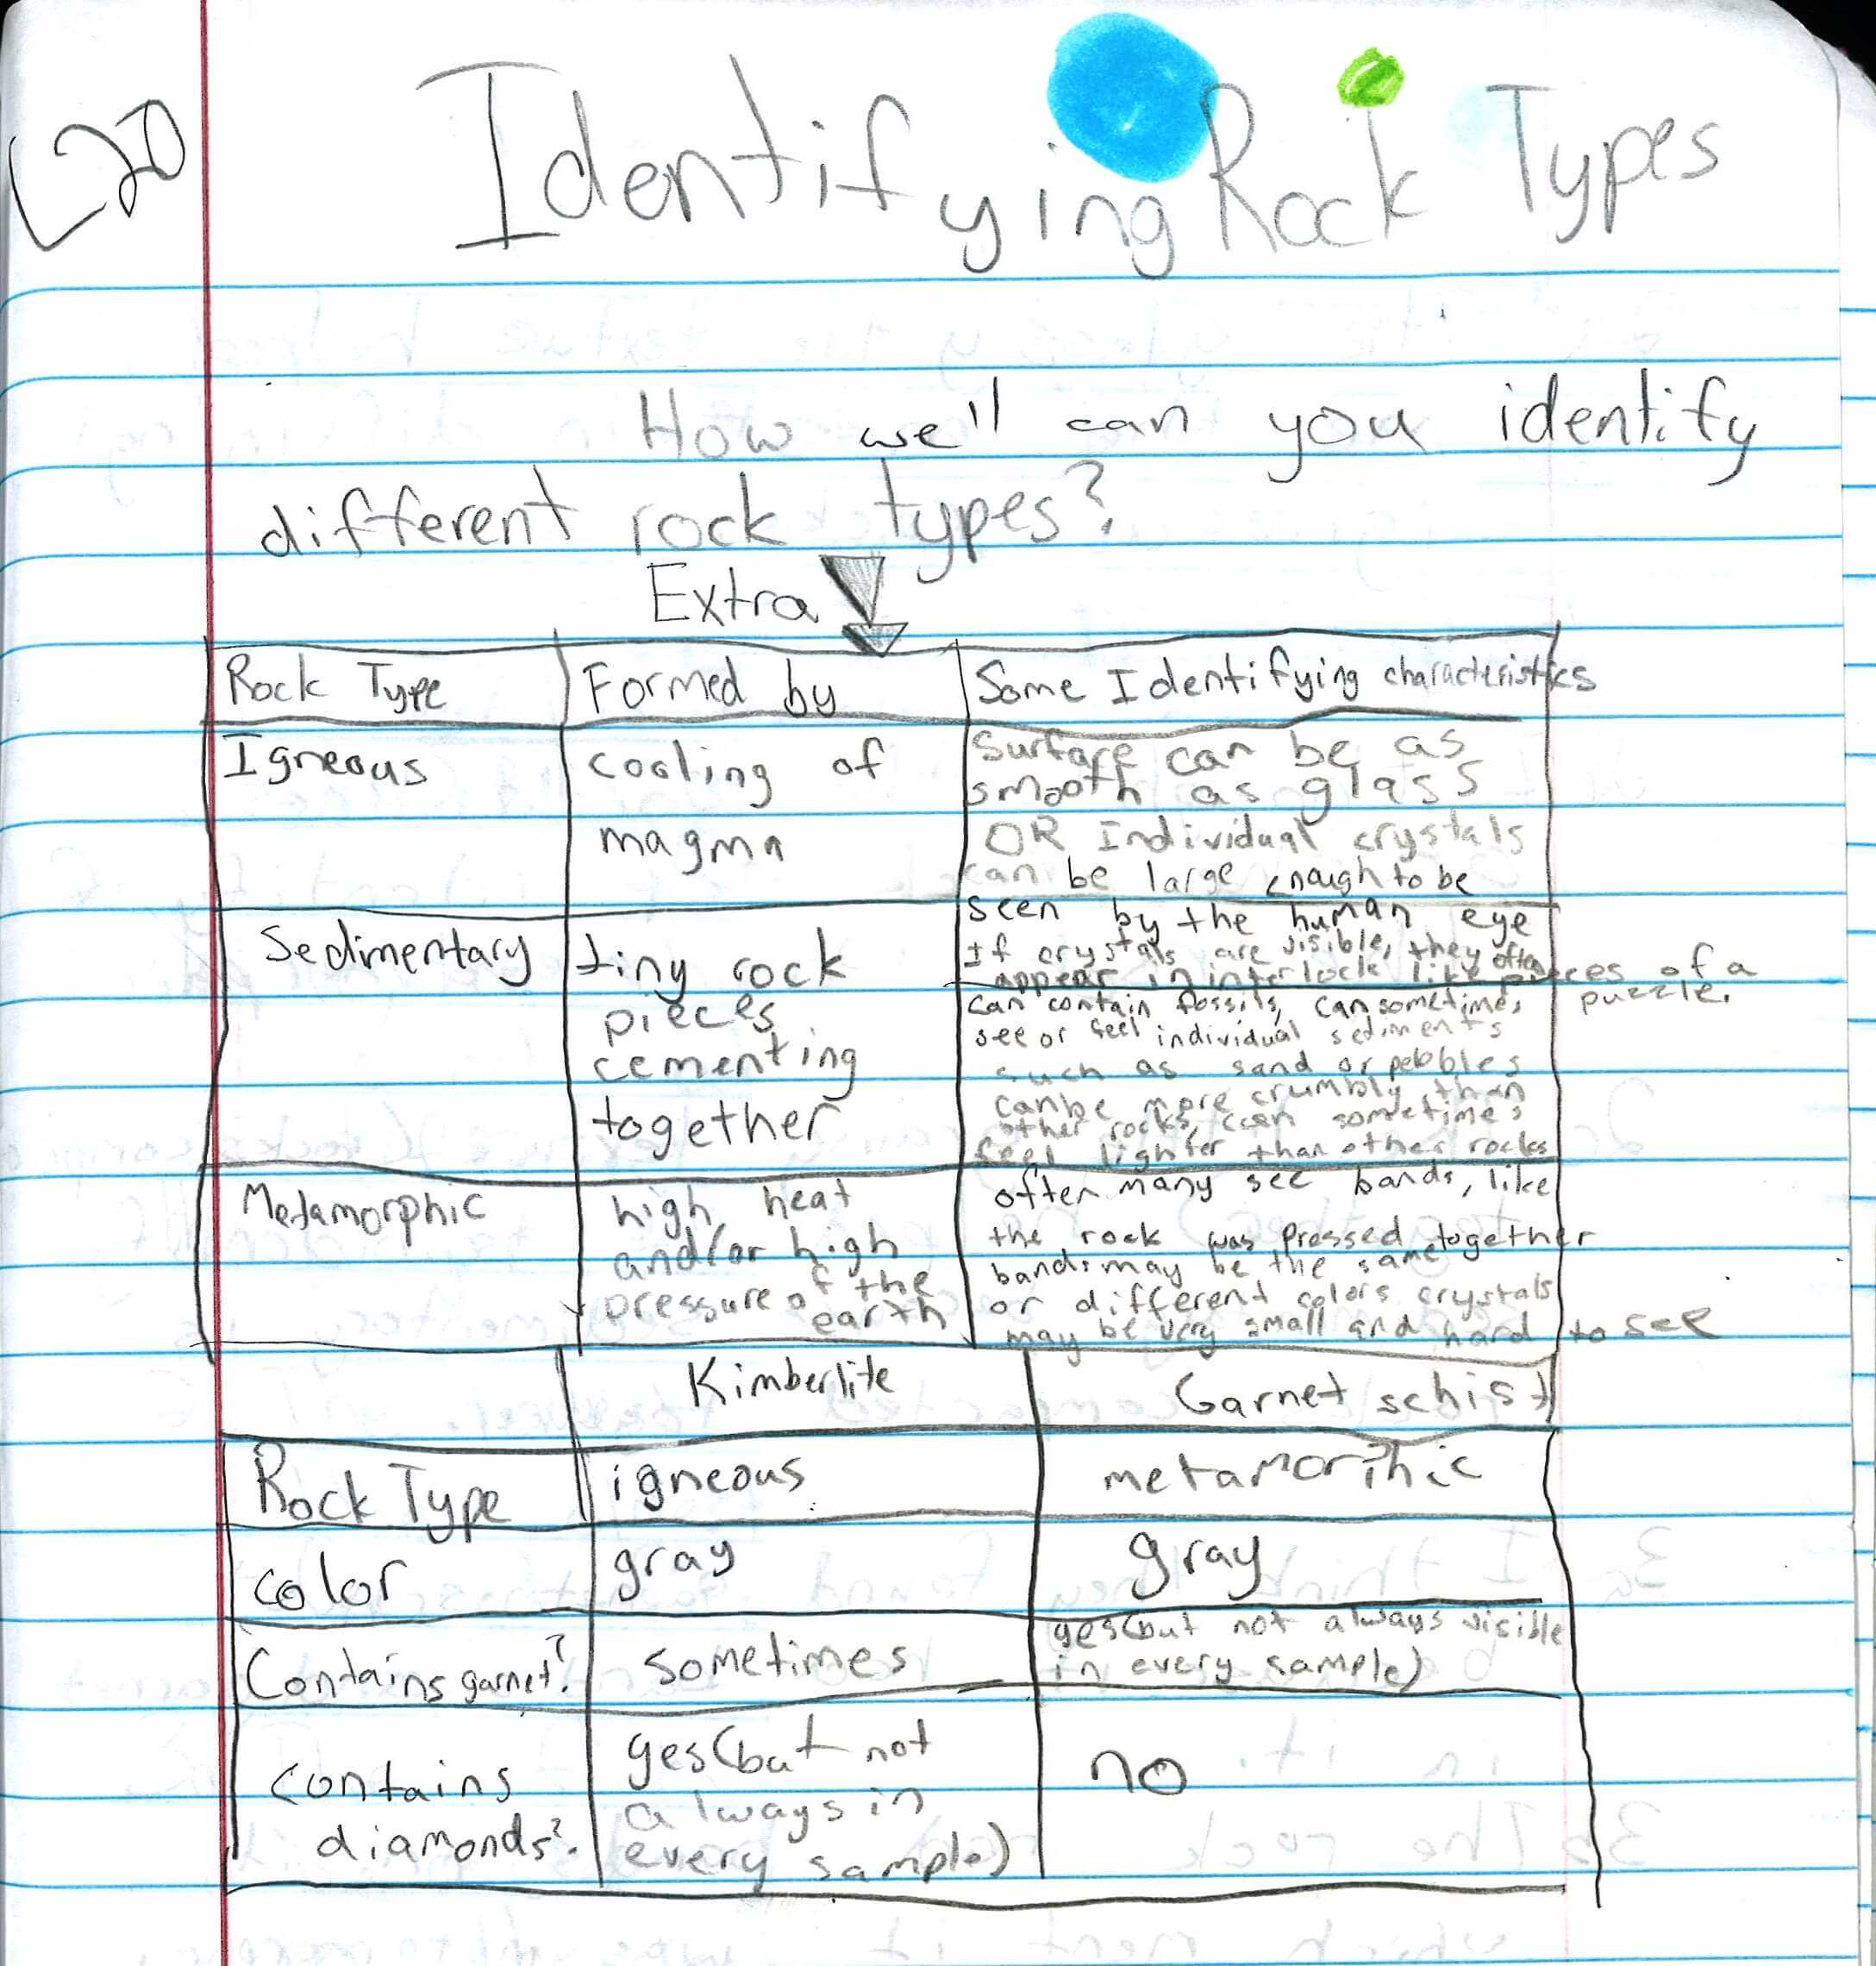 L20
Identifying Rock Types
How well can you identify
different rock types?
Extra
Rock Type
Formed by
Some Identifying characteristics
Igneous
cooling of
magma
Surface can be as
smooth as glass
OR Individual crystals
can be large enough to be
seen by the human eye
If crystals are visible, they often
appear in interlock like pieces of a
puzzle.
Sedimentary
tiny rock
pieces
cementing
together
can contain fossils, can sometimes
see or feel individual sediments
such as sand or pebbles
can be more crumbly than
other rocks, can sometimes
feel lighter than other rocks
Metamorphic
high heat
and/or high
pressure of the
earth
often many see bands, like
the rock was pressed together
bands may be the same
or different colors crystals
may be very small and hard to see
Kimberlite
Garnet schist
Rock Type
igneous
metamorphic
color
gray
gray
Contains garnet?
sometimes
yes(but not always visible
in every sample)
contains
diamonds?
yes(but not
always in
every sample)
no